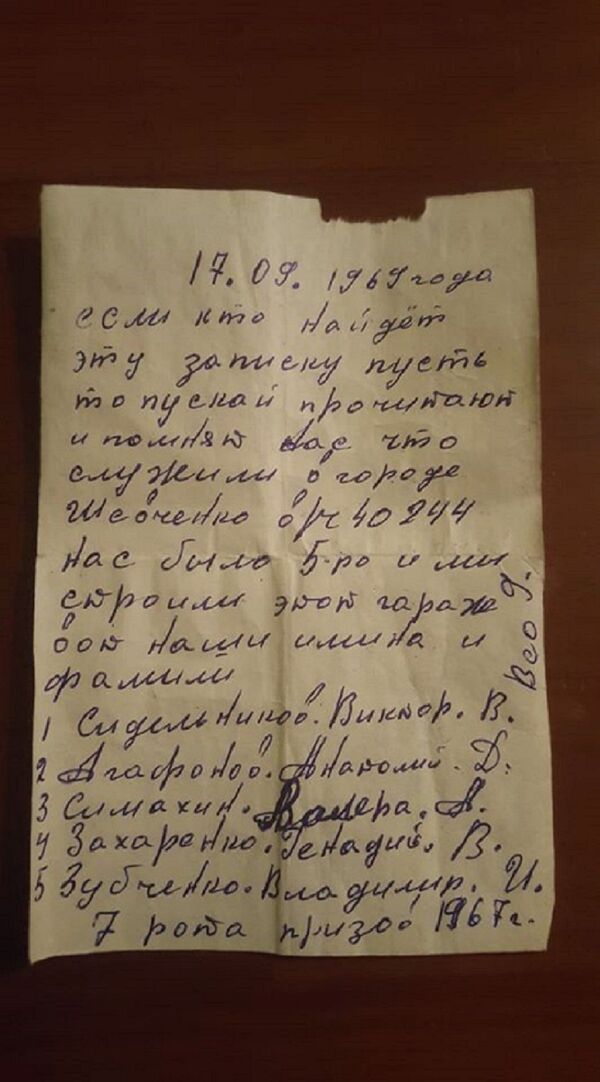 17.09.1969 года
если кто найдёт
эту записку пусть
то пускай прочитают
и помнят нас что
служили в городе
Шевченко в/ч 40244
нас было 5-ро и ми
строили этот гараже
вот наши имина и
фамили
1 Сидельников. Виктор. В.
2 Агафонов. Анатолий. Д.
3 Симахин. Валера. А.
4 Захаренко. Генадий. В.
5 Зубченко. Владимир. И.
7 рота призов 1967г.